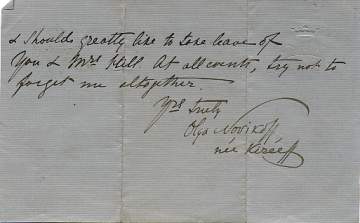 & should greatly like to take leave of
You & Mrs Hill. At all events, try not to
forget me altogether.
Yrs truly
Olga Novikoff
née Kiréeff